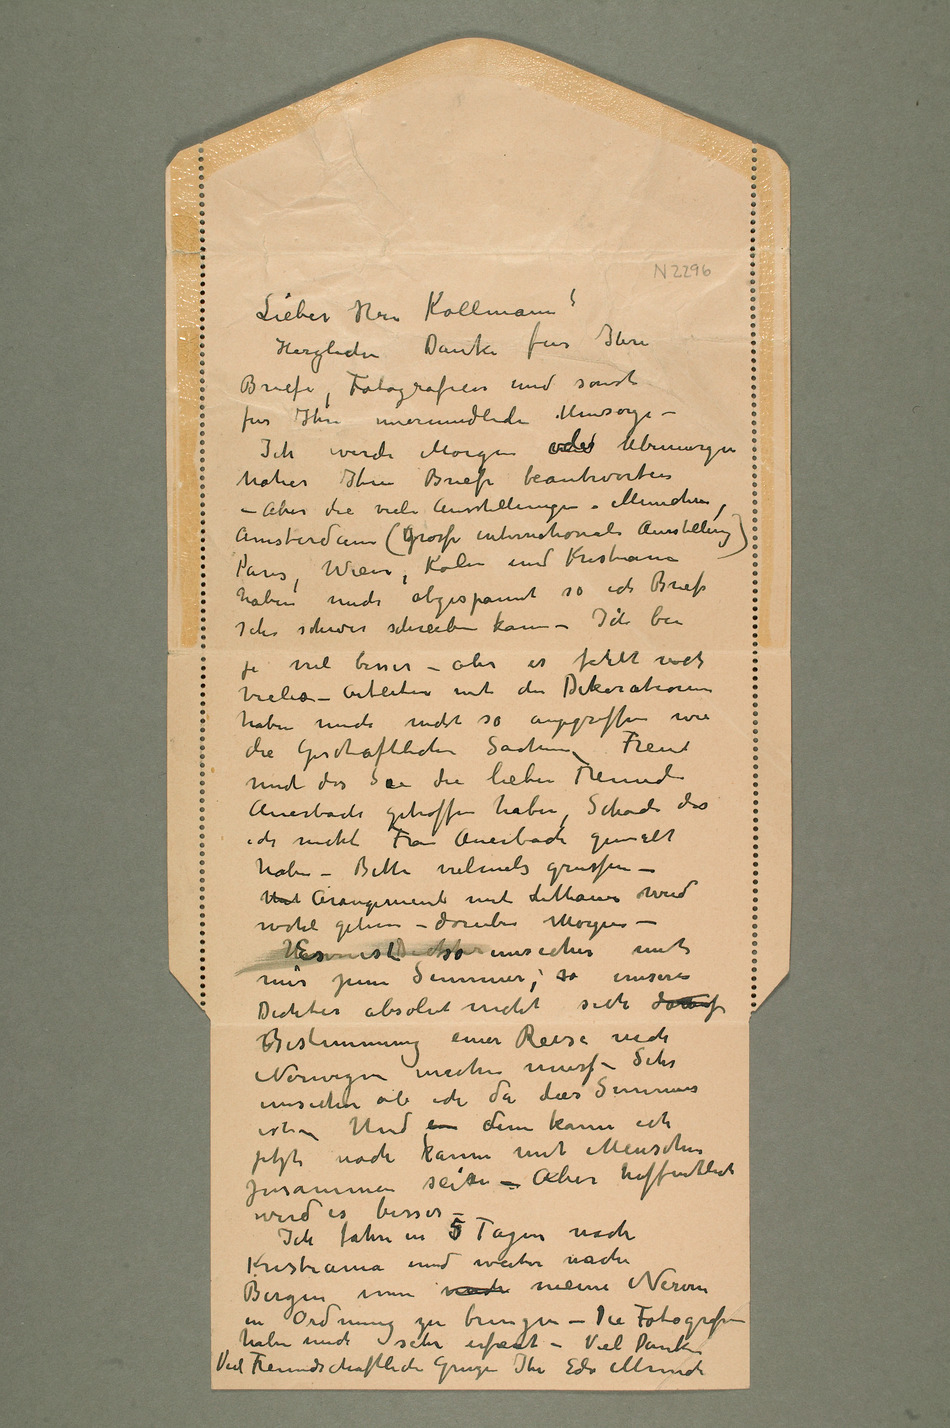 N 2296
Lieber Herr Kollmann!
Herzlichen Danke fur Ihre
Briefe, Fotografien und sonst
fur Ihre unermudliche Umsorge –
Ich werde Morgen oder Ubermorgen
naher Ihren Briefe beantworten
– Aber die viele Ausstellungen – Munchen,
Amsterdam (Grosse internationale Ausstellung)
Paris, Wien, Køln und Kristiania
haben mich abgespannt so ich Briefe
sehr schwer schreiben kann – Ich bin
ja viel besser – aber es fehlt noch
vieles – Arbeiten mit den Dekorationen
haben mich nicht so angegriffen wie
die Geschaftlichen Sachen, Freut
mich das Sie die lieben Freunde
Auerbach getroffen haben, Schade das
ich nicht Frau Auerbach gemalt
habe – Bitte vielmals grussen –
Arangement mit Littauer wird
wohl gehen – daruber Morgen –
Es ist so unsicher mit
mir zum Sommer, so unsere
Dichter absolut nicht sich
Bestimmung einer Reise nach
Norwegen machen muss – Sehr
unsicher ob ich da das Sommer
ist – Und dem kann ich
jetzt noch kaum mit Menschen
zusammen sein – Aber hoffentlich
wird es besser –
Ich fahre in 5 Tagen nach
Kristiania und weiter nach
Bergen um meine Nerven
in Ordnung zu bringen – Die Fotografien
haben mich sehr erfreut – Viel Danke
Viel Freundschaftliche Gruze Ihr Edv Munch